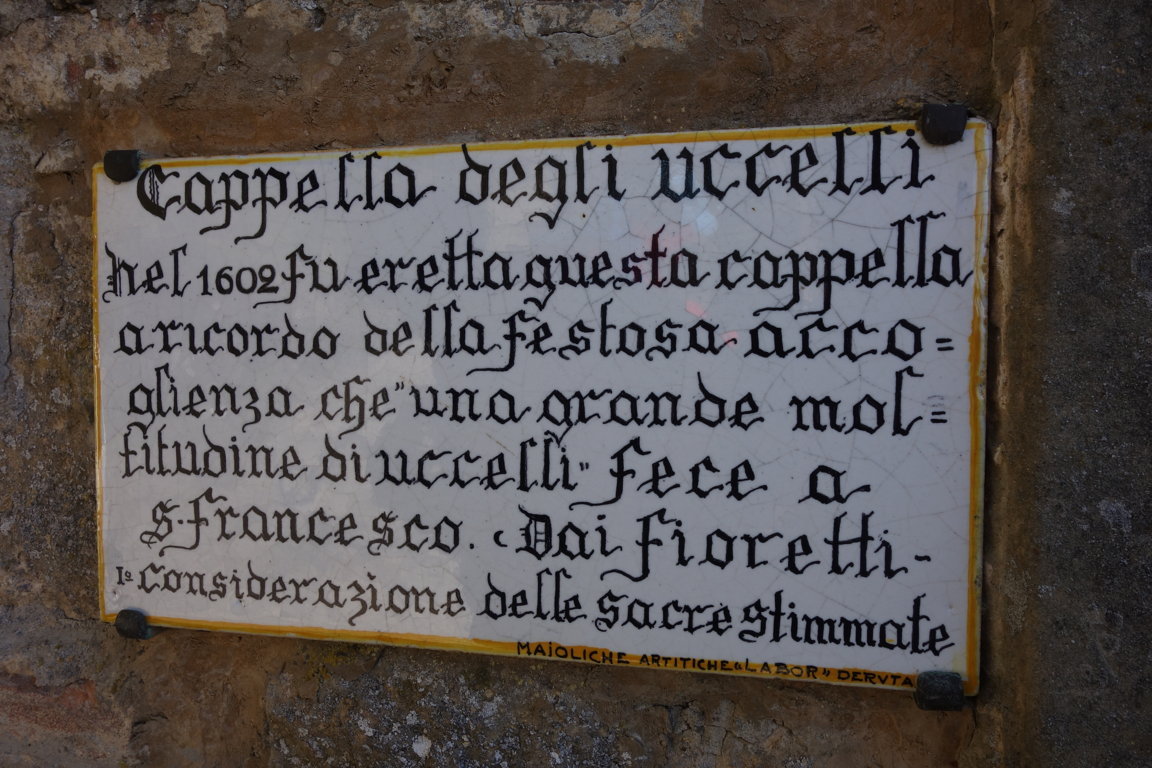 Cappella degli uccelli
Nel 1602 fu eretta questa cappella
a ricordo della festosa acco=
glienza che "una grande mol=
titudine di uccelli" fece a
S. Francesco. (Dai Fioretti-
Iª considerazione delle sacre stimmate
MAIOLICHE ARTITICHE "LABOR" DERVTA